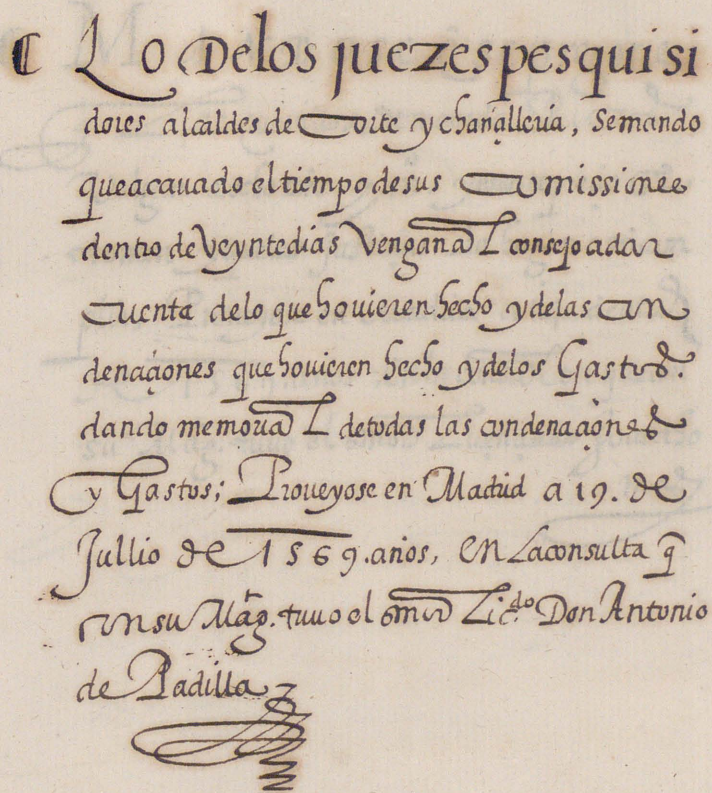 ¶ Lo De los juezes pesquisi
dores alcaldes de Corte y chançilleria, Se mando
que acavado el tiempo de sus Comissiones
dentro de Veynte dias Vengan al consejo a dar
cuenta de lo que hovieren hecho y de las con
denaçiones que hovieren hecho y de los Gastos.
dando memorial de todas las condenaçiones
y Gastos; Proveyose en Madrid a 19. de
Jullio de 1569. años, en La consulta q̃
con su Mag. tuvo el Señor Licᵈᵒ. Don Antonio
de Padilla